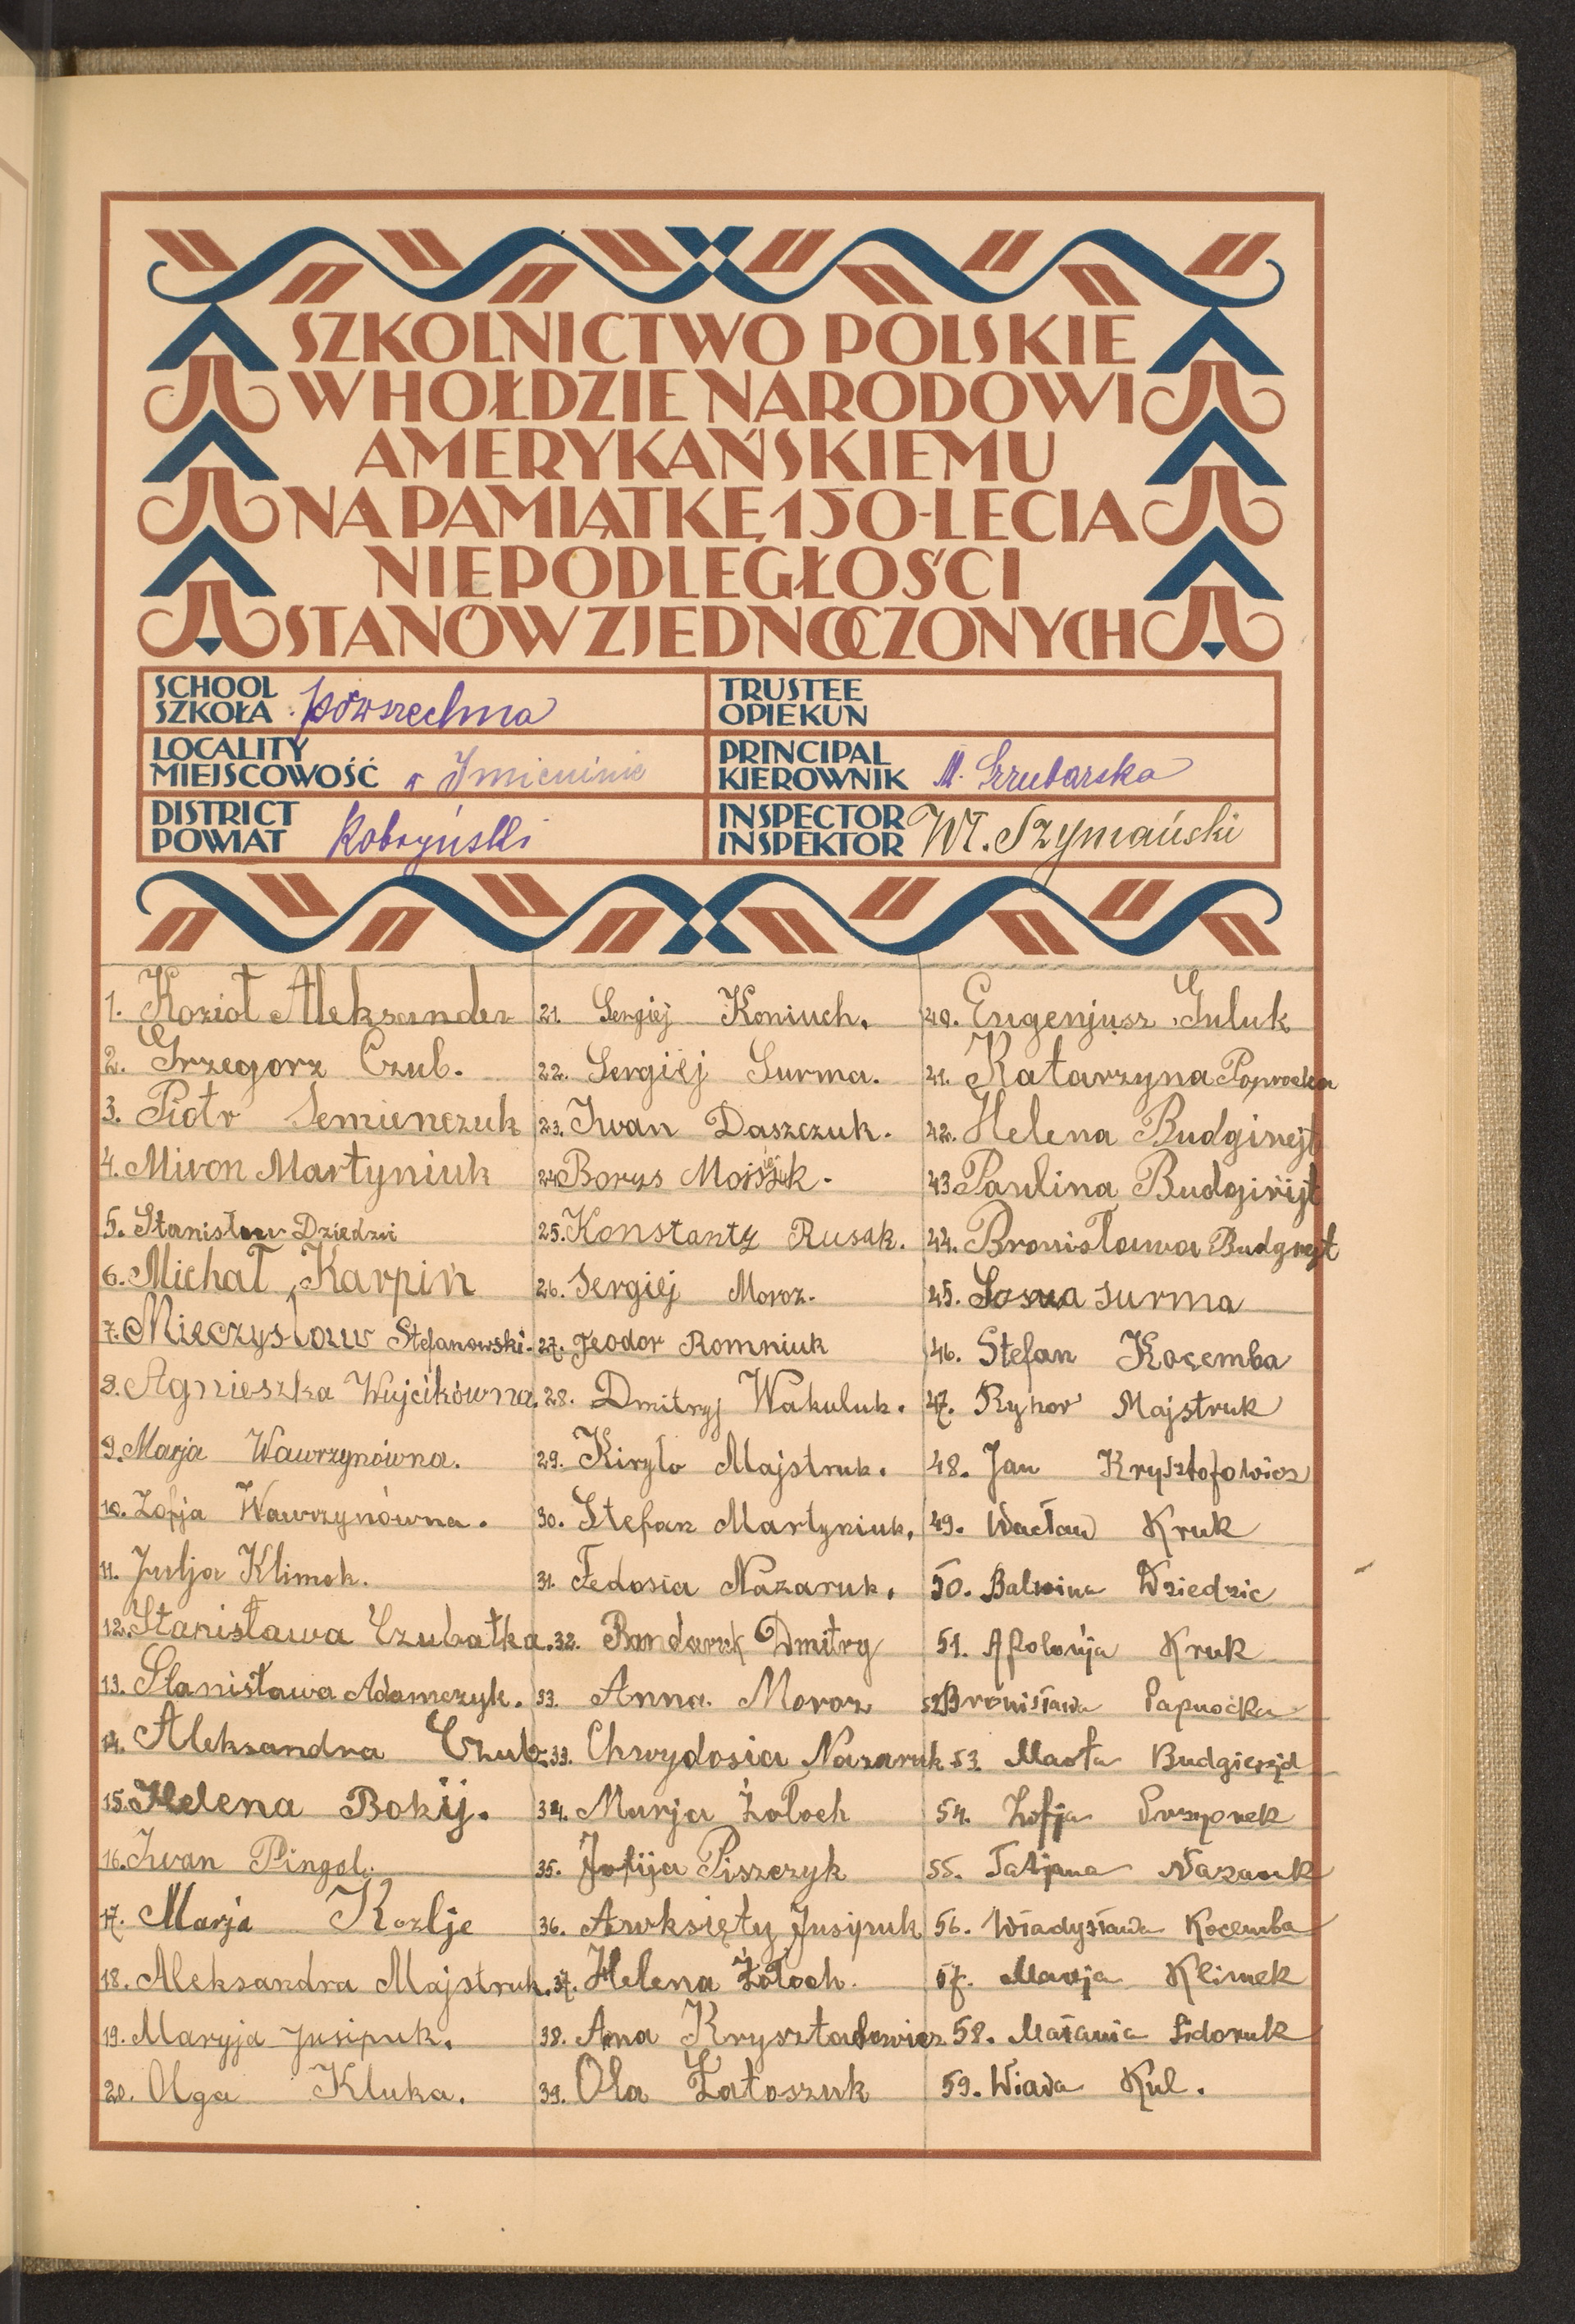 SZKOLNICTWO POLSKIE
W HOŁDZIE NARODOWI
AMERYKAŃSKIEMU
NA PAMIĄTKĘ 150-LECIA
NIEPODLEGŁOŚCI
STANÓW ZJEDNOCZONYCH
SCHOOL
SZKOŁA powszechna
TRUSTEE
OPIEKUN
LOCALITY
MIEJSCOWOŚĆ w Imieninie
PRINCIPAL
KIEROWNIK M.
DISTRICT
POWIAT Kobryński
INSPECTOR
INSPEKTOR Wł. Szymański
1. Kozioł Aleksander
2. Grzegorz Czub.
3. Piotr Semienczuk
4. Miron Martyniuk
5. Stanisław Dziedzic
6. Michał Karpin
7. Mieczysław Stefanowski.
8. Agnieszka Wujcikówna.
9. Marja Wawrzynówna.
10. Zofja Wawrzynówna.
11. Julja Klimek.
12. Stanisława Czubatka.
13. Stanisława Adamczyk.
14. Aleksandra Czub.
15. Helena Bokij.
16. Iwan Pingol.
17. Marja Kozlje
18. Aleksandra Majstruk.
19. Maryja Jusipuk.
20. Olga Kluka.
21. Sergiej Koniuch.
22. Sergiej Surma.
23. Iwan Daszczuk.
24. Borys
25. Konstanty Rusak.
26. Sergiej Moroz.
27. Feodor Romniuk
28. Dmitryj Wakuluk.
29. Kiryło Majstruk.
30. Stefan Martyniuk.
31. Fedosia Nazaruk.
32. Bondaruk Dmitry
33. Anna Moroz
33. Chwydosia Nazaruk
34. Marja Żołoch
35. Zofija Piszczyk
36. Awksięty Jusipuk
37. Helena Żołoch.
38. Anna Krysztofowicz
39. Ola Załoszuk
40. Eugenjusz Guluk
41. Katarzyna Poprocka
42. Helena Budginejt
43. Paulina Budginijt
44. Bronisława Budgnejt
45. Surma
46. Stefan Kocemba
47. Ryhor Majstruk
48. Jan Krysztofowicz
49. Wacław Kruk
50. Balwina Dziedzic
51. Apolonja Kruk
52. Bronisława Paprocka
53. Marta
54. Zofja
55. Tatjana Nazaruk
56. Władysława Kocemba
57. Marja Klimek
58. Małania Sidoruk
59. Kul.